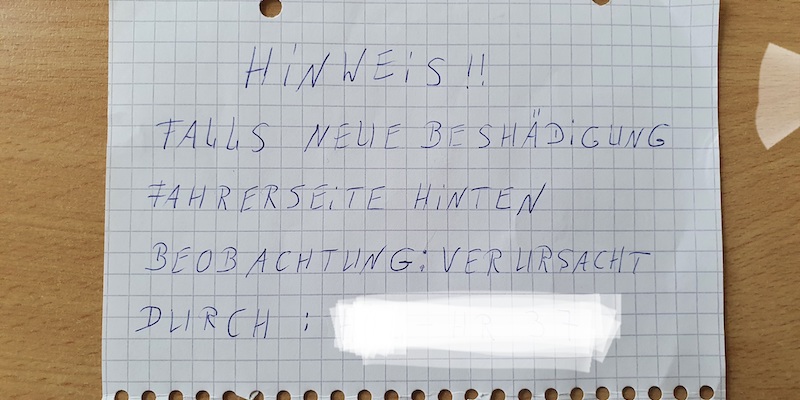 HINWEIS!!
FALLS NEUE BESHÄDIGUNG
FAHRERSEITE HINTEN
BEOBACHTUNG: VERURSACHT
DURCH :